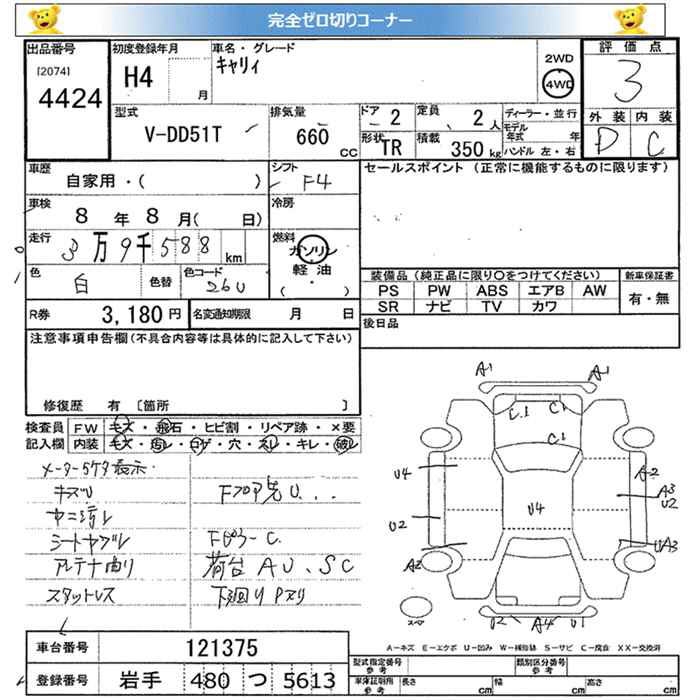 完全ゼロ切りコーナー
出品番号
[2074]
4424
初度登録年月
H4
月
車名・グレード
キャリィ
2WD
4WD
評価点
3
外装 内装
D C
型式
V-DD51T
排気量
660 CC
ドア 2
定員 2 人
形状 TR
積載 350 kg
ディーラー・並行
モデル年式 年
ハンドル 左・右
車歴
自家用・( )
シフト
F4
セールスポイント (正常に機能するものに限ります)
車検
8 年 8 月( 日)
冷房
走行
3万9千588 km
燃料
ガソリン
軽油
( ・ )
色
白
色替
色コード
26U
装備品 (純正品に限り○をつけてください)
PS PW ABS エアB AW
SR ナビ TV カワ
新車保証書
有・無
R券 3,180 円
名変通知期限 月 日
後日品
注意事項申告欄(不具合内容等は具体的に記入して下さい)
修復歴 有 〔箇所 〕
検査員記入欄
FW キズ・飛石・ヒビ割・リペア跡・×要
内装 キズ・汚レ・コゲ・穴・スレ・キレ・破レ
メーター5ケタ表示
キズU
ヤニ汚レ
シートヤブレ
アンテナ曲り
スタットレス
Fフロア先U...
FピラーC
荷台AU、SC
下廻りPスリ
A1 A1
C1 C1
C1
U4 A2
A3
U2
U4
U2
A2 UA3
U2 A4 U1
スペア
A-キズ E-エクボ U-凹み W-補修跡 S-サビ C-腐食 XX-交換済
車台番号 121375
登録番号 岩手 480 つ 5613
型式指定番号 参考
類別区分番号 参考
車庫証明 参考
長さ cm 幅 cm 高さ cm